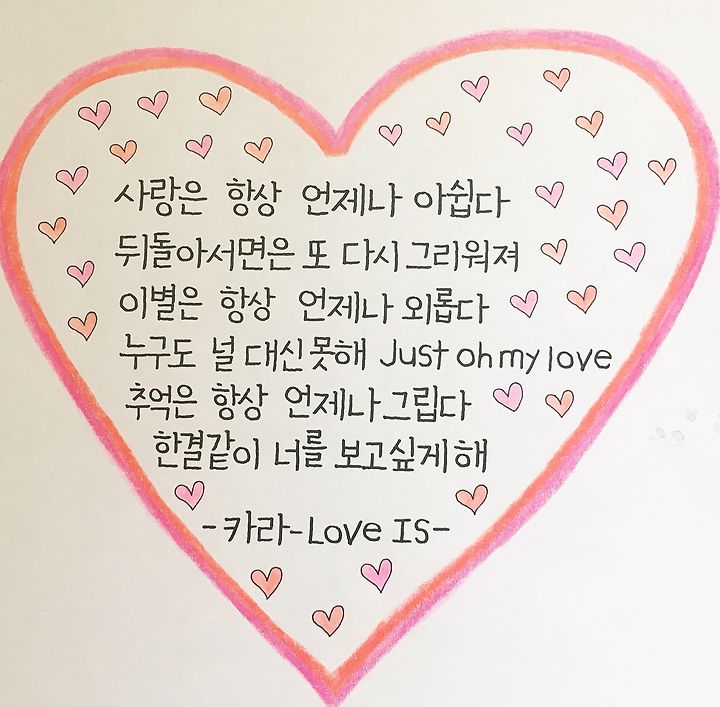 사랑은 항상 언제나 아쉽다
뒤돌아서면은 또 다시 그리워져
이별은 항상 언제나 외롭다
누구도 널 대신 못해 Just oh my love
추억은 항상 언제나 그립다
한결같이 너를 보고싶게 해
-카라-Love IS-